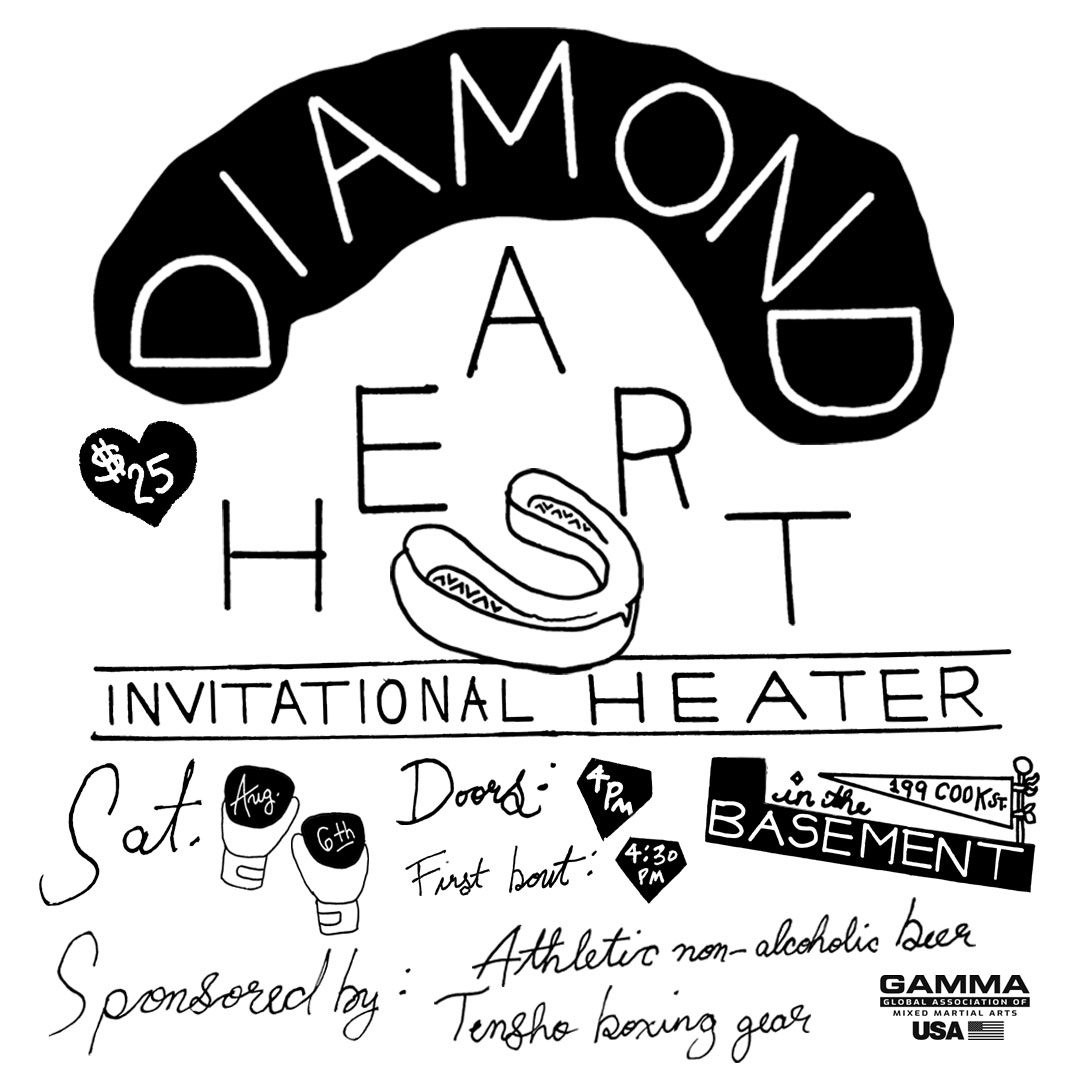 DIAMOND
HEART
$25
INVITATIONAL HEATER
Sat. Aug. 6th
Doors: 4PM
First bout: 4:30 PM
in the
BASEMENT
199 COOK ST.
Sponsored by: Athletic non-alcoholic beer
Tensho boxing gear
GAMMA
GLOBAL ASSOCIATION OF
MIXED MARTIAL ARTS
USA